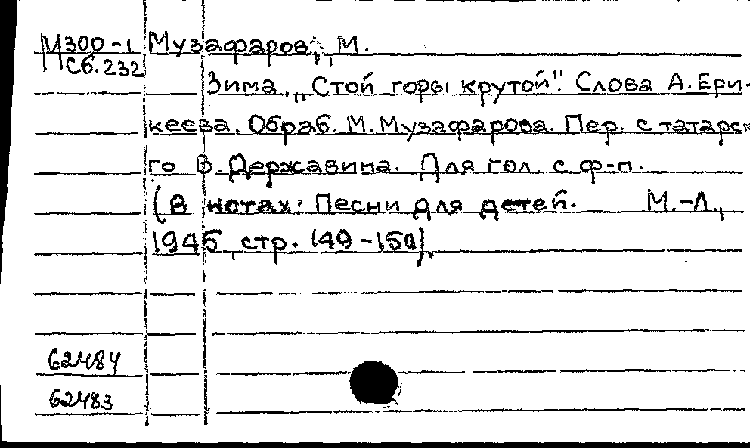 М300-1 Музафаров, М.
Сб.232
Зима. „Стой горы крутой". Слова А. Ери-
кеева. Обраб. М. Музафарова. Пер. с татарск
го В. Державина. Для гол. с ф-п.
(В нотах: Песни для детей. М.-Л.,
1945, стр. 149-150).
62484
62483